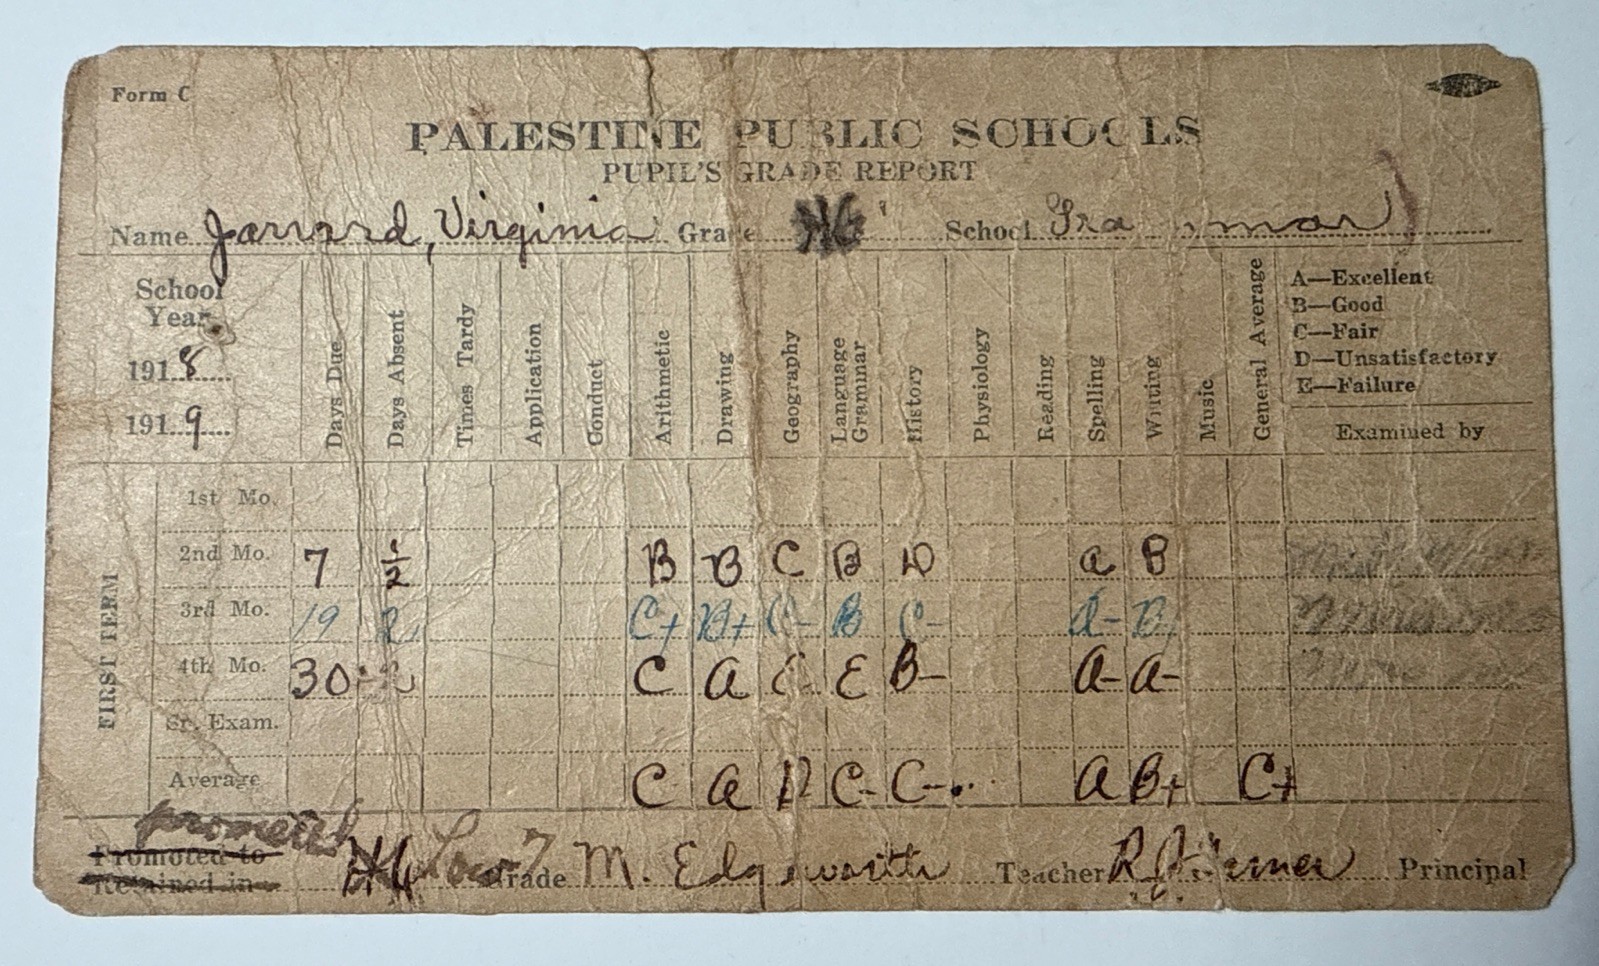 Form C
PALESTINE PUBLIC SCHOOLS
PUPIL'S GRADE REPORT
Name Jarrard, Virginia Grade School Grammar
School Year
1918
1919
Days Due Days Absent Times Tardy Application Conduct Arithmetic Drawing Geography Language Grammar History Physiology Reading Spelling Writing Music General Average
A—Excellent
B—Good
C—Fair
D—Unsatisfactory
E—Failure
Examined by
FIRST TERM
1st Mo.
2nd Mo. 7 1/2 B B C B D a B
3rd Mo. 19 2 C+ B+ C- B C- A- B
4th Mo. 30 C A C E B- A- A-
Sr. Exam.
Average C A D C- C- A B+ C+
promoted
Promoted to
Retained in Low 7 Grade M. Edgeworth Teacher R. Principal